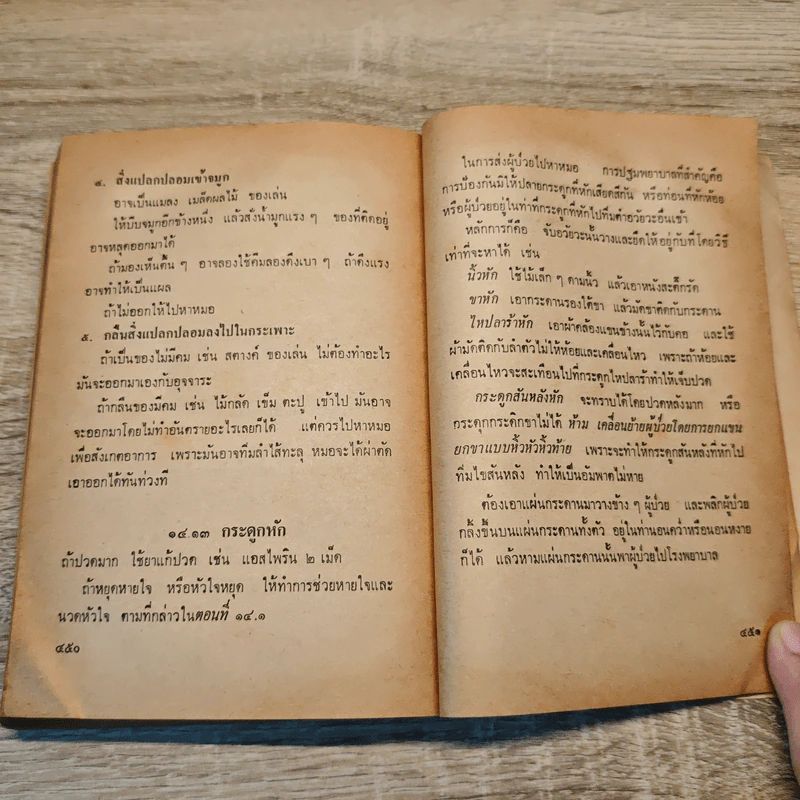 ๔. สิ่งแปลกปลอมเข้าจมูก
อาจเป็นแมลง เมล็ดผลไม้ ของเล่น
ให้บีบจมูกอีกข้างหนึ่ง แล้วสั่งน้ำมูกแรง ๆ ของที่ติดอยู่
อาจหลุดออกมาได้
ถ้ามองเห็นตื้น ๆ อาจลองใช้คีมลองดึงเบา ๆ ถ้าดึงแรง
อาจทำให้เป็นแผล
ถ้าไม่ออกให้ไปหาหมอ
๕. กลืนสิ่งแปลกปลอมลงไปในกระเพาะ
ถ้าเป็นของไม่มีคม เช่น สตางค์ ของเล่น ไม่ต้องทำอะไร
มันจะออกมาเองกับอุจจาระ
ถ้ากลืนของมีคม เช่น ไม้กลัด เข็ม ตะปู เข้าไป มันอาจ
จะออกมาโดยไม่ทำอันตรายอะไรเลยก็ได้ แต่ควรไปหาหมอ
เพื่อสังเกตอาการ เพราะมันอาจทิ่มลำไส้ทะลุ หมอจะได้ผ่าตัด
เอาออกได้ทันท่วงที
๑๔.๑๓ กระดูกหัก
ถ้าปวดมาก ใช้ยาแก้ปวด เช่น แอสไพริน ๒ เม็ด
ถ้าหยุดหายใจ หรือหัวใจหยุด ให้ทำการช่วยหายใจและ
นวดหัวใจ ตามที่กล่าวในตอนที่ ๑๔.๑
๔๕๐
ในการส่งผู้ป่วยไปหาหมอ การปฐมพยาบาลที่สำคัญคือ
การป้องกันมิให้ปลายกระดูกที่หักเสียดสีกัน หรือท่อนที่หักห้อย
หรือผู้ป่วยอยู่ในท่าที่กระดูกที่หักไปทิ่มตำอวัยวะอื่นเข้า
หลักการก็คือ จับอวัยวะนั้นวางและยึดให้อยู่กับที่โดยวิธี
เท่าที่จะหาได้ เช่น
นิ้วหัก ใช้ไม้เล็ก ๆ ดามนิ้ว แล้วเอาหนังสะติ๊กรัด
ขาหัก เอากระดานรองใต้ขา แล้วมัดขาติดกับกระดาน
ไหปลาร้าหัก เอาผ้าคล้องแขนข้างนั้นไว้กับคอ และใช้
ผ้ามัดติดกับลำตัวไม่ให้ห้อยและเคลื่อนไหว เพราะถ้าห้อยและ
เคลื่อนไหวจะสะเทือนไปที่กระดูกไหปลาร้าทำให้เจ็บปวด
กระดูกสันหลังหัก จะทราบได้โดยปวดหลังมาก หรือ
กระดุกกระดิกขาไม่ได้ ห้าม เคลื่อนย้ายผู้ป่วยโดยการยกแขน
ยกขาแบบหิ้วหัวหิ้วท้าย เพราะจะทำให้กระดูกสันหลังที่หักไป
ทิ่มไขสันหลัง ทำให้เป็นอัมพาตไม่หาย
ต้องเอาแผ่นกระดานมาวางข้าง ๆ ผู้ป่วย และพลิกผู้ป่วย
กลิ้งขึ้นบนแผ่นกระดานทั้งตัว อยู่ในท่านอนคว่ำหรือนอนหงาย
ก็ได้ แล้วหามแผ่นกระดานนั้นพาผู้ป่วยไปโรงพยาบาล
๔๕๑